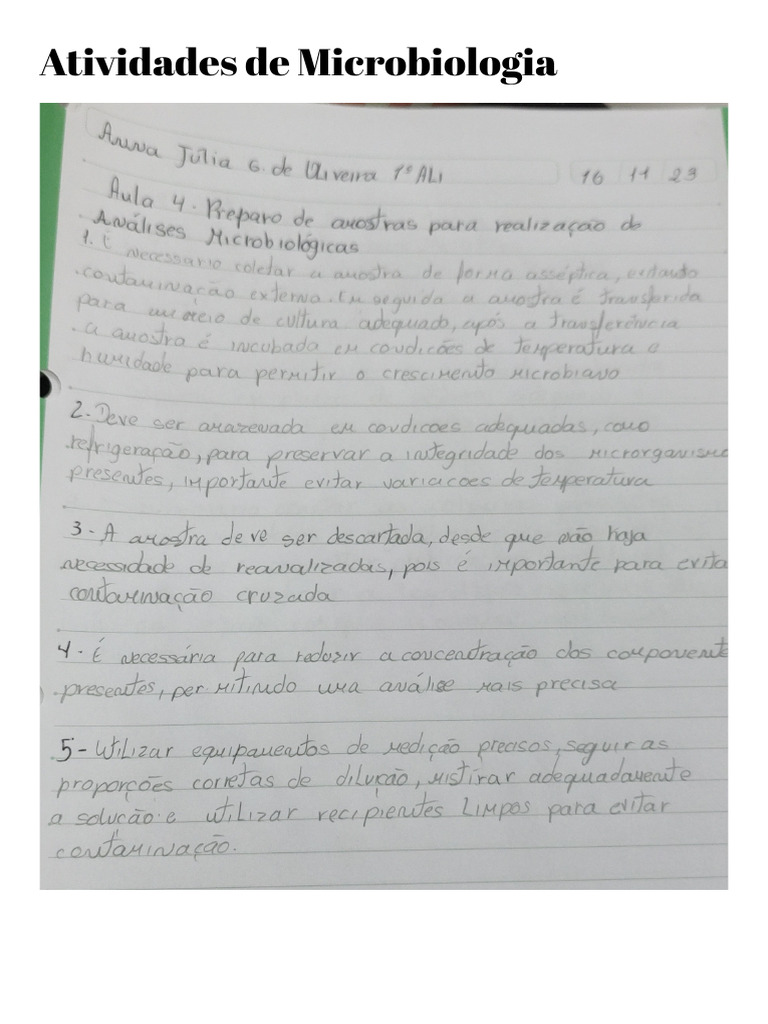 Atividades de Microbiologia
Anna Júlia G. de Oliveira 1º ALI 16 11 23
Aula 4. Preparo de amostras para realização de
Análises Microbiológicas
1. É necessario coletar a amostra de forma asséptica, evitando
contaminação externa. Em seguida a amostra é transferida
para um meio de cultura adequado, após a transferência
a amostra é incubada em condicões de temperatura e
humidade para permitir o crescimento microbiano
2. Deve ser amazenada em condicoes adequadas, como
refrigeração, para preservar a integridade dos microrganismo
presentes, importante evitar variacoes de temperatura
3 - A amostra deve ser descartada, desde que não haja
necessidade de reanalizadas, pois é importante para evita
contaminação cruzada
4 - É necessária para reduzir a concentração dos component
presentes, permitindo uma análise mais precisa
5 - Utilizar equipamentos de medição precisos, seguir as
proporções corretas de diluição, mistirar adequadamente
a solucão e utilizar recipientes limpos para evitar
contaminação.